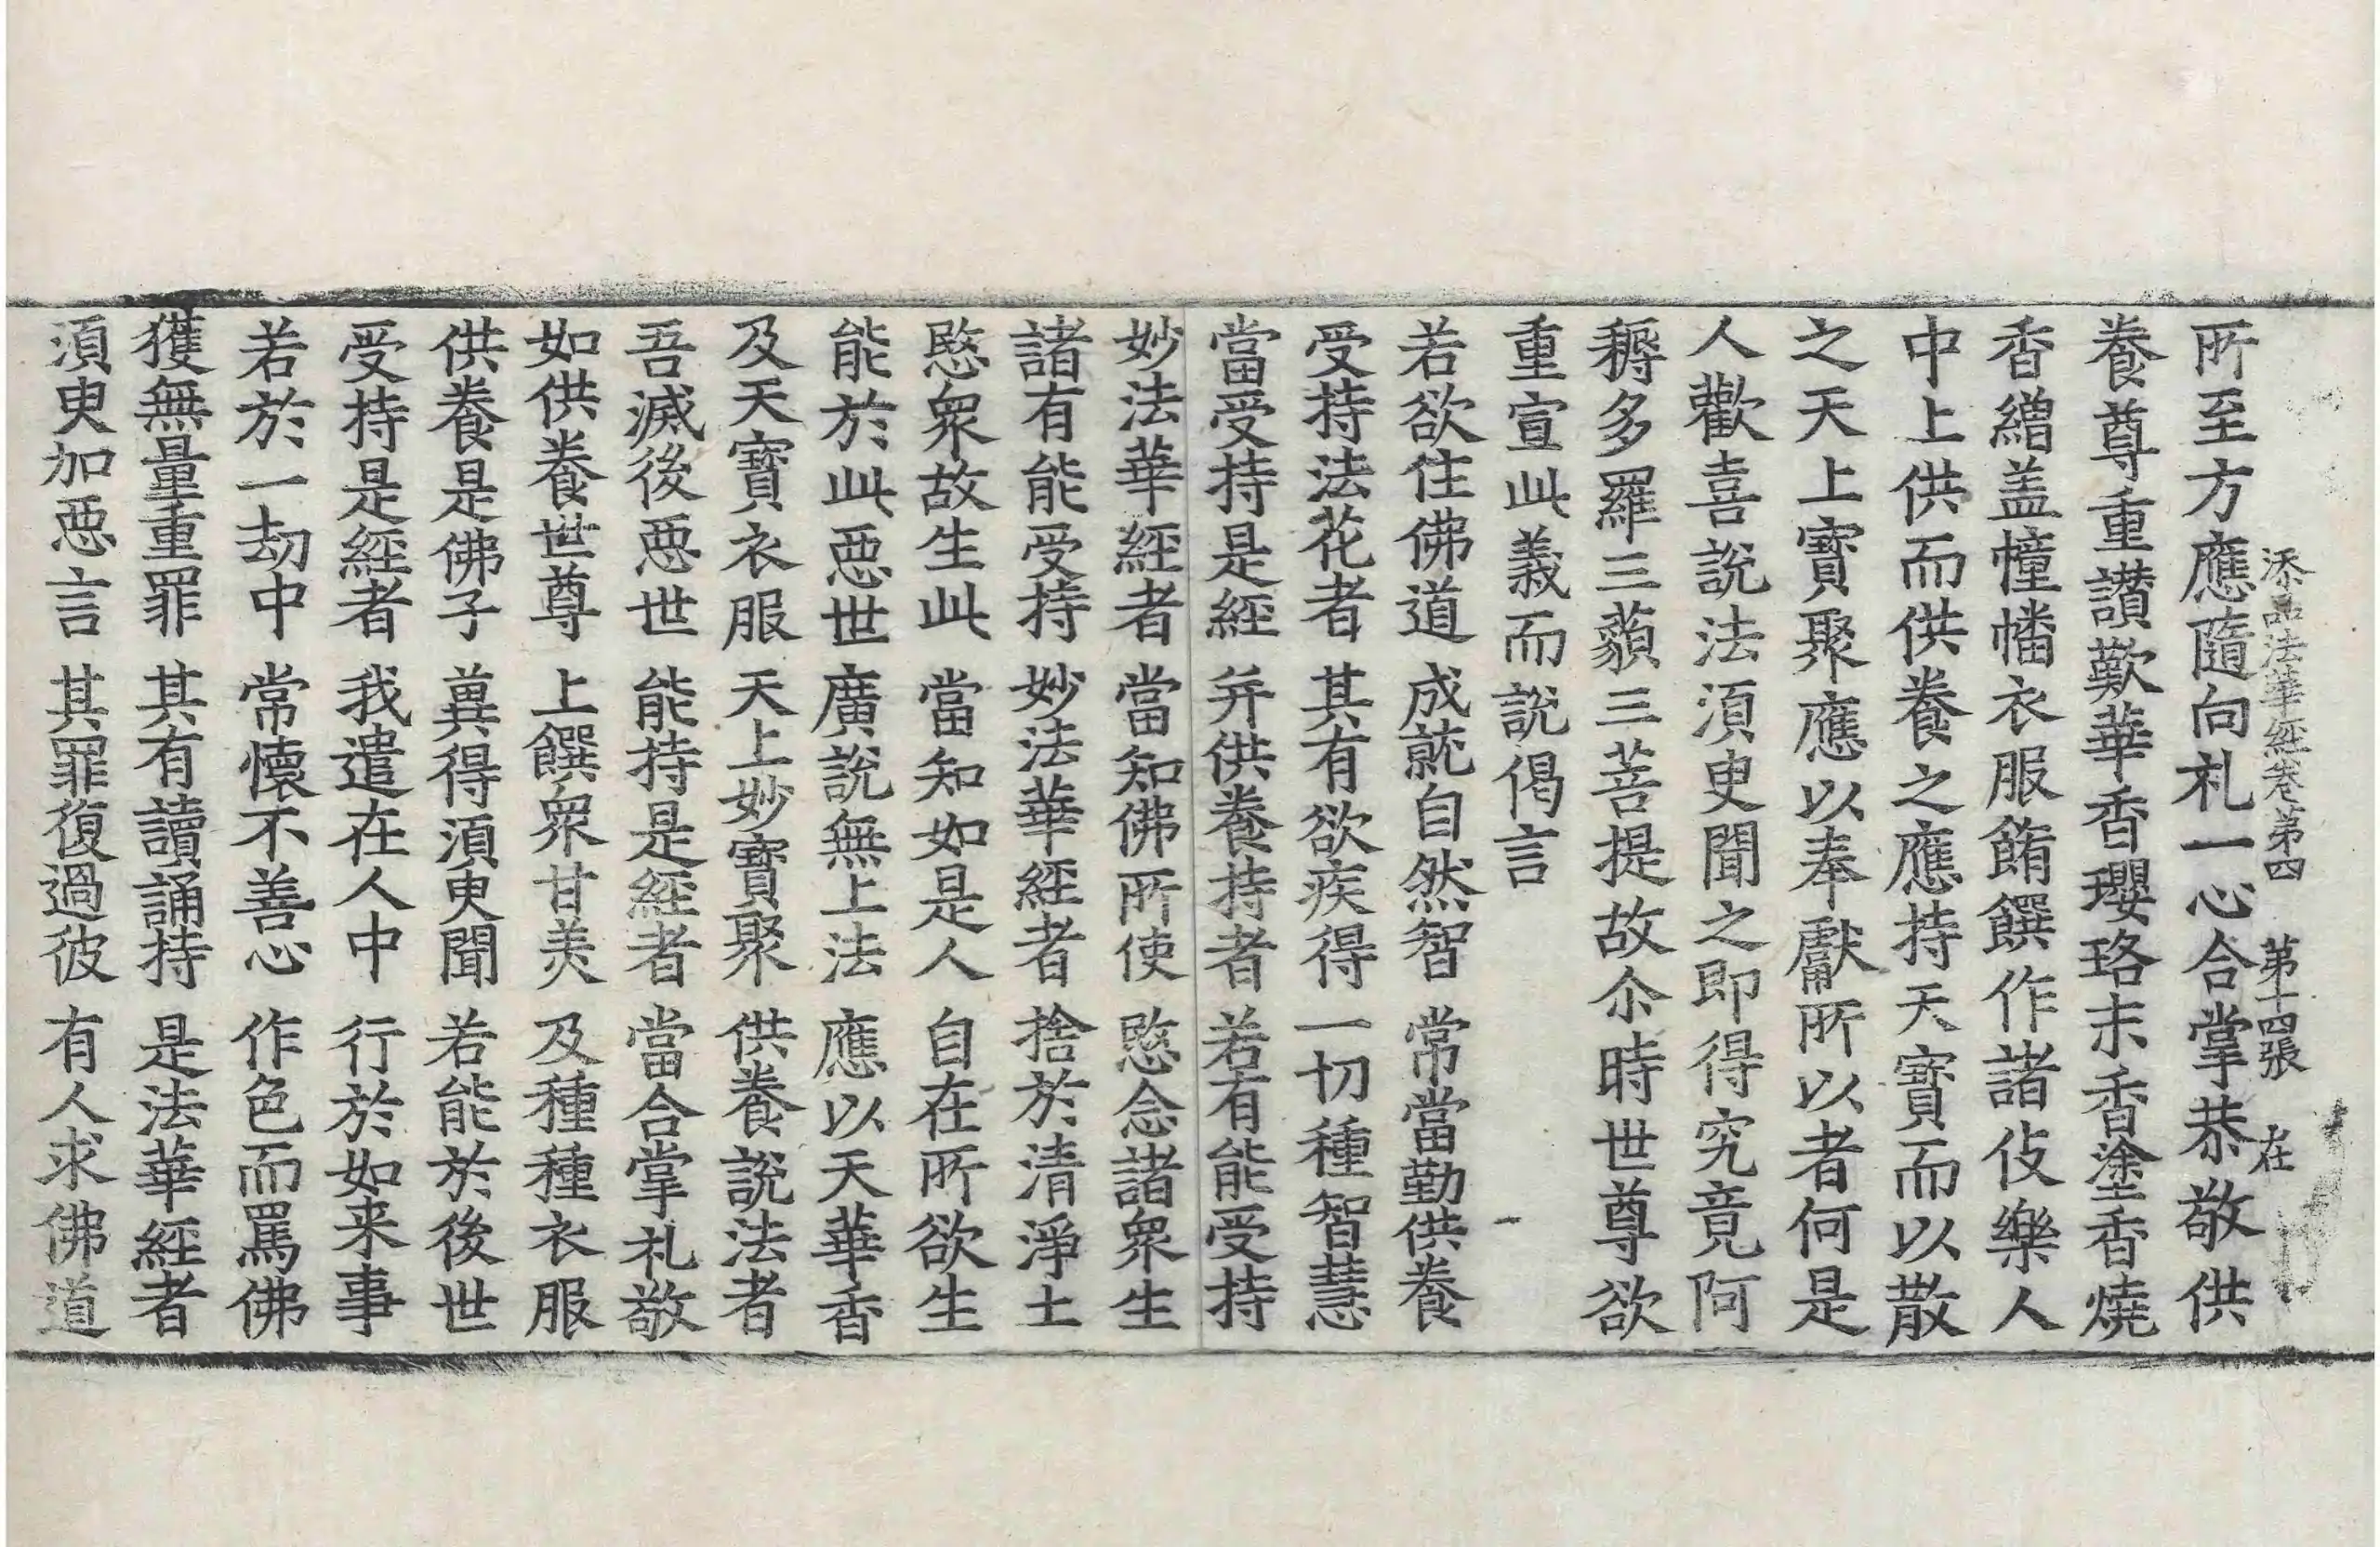 添品法華經卷第四　第十四張　在
所至方應隨向礼一心合掌恭敬供
養尊重讃歎華香瓔珞末香塗香燒
香繒盖幢幡衣服餚饌作諸伎樂人
中上供而供養之應持天寶而以散
之天上寶聚應以奉獻所以者何是
人歡喜說法須臾聞之即得究竟阿
耨多羅三藐三菩提故尒時世尊欲
重宣此義而說偈言
若欲住佛道　成就自然智　常當勤供養
受持法花者　其有欲疾得　一切種智慧
當受持是經　并供養持者　若有能受持
妙法華經者　當知佛所使　愍念諸衆生
諸有能受持　妙法華經者　捨於清淨土
愍衆故生此　當知如是人　自在所欲生
能於此惡世　廣說無上法　應以天華香
及天寶衣服　天上妙寶聚　供養說法者
吾滅後惡世　能持是經者　當合掌礼敬
如供養世尊　上饌衆甘美　及種種衣服
供養是佛子　冀得須臾聞　若能於後世
受持是經者　我遣在人中　行於如来事
若於一劫中　常懷不善心　作色而罵佛
獲無量重罪　其有讀誦持　是法華經者
須臾加惡言　其罪復過彼　有人求佛道